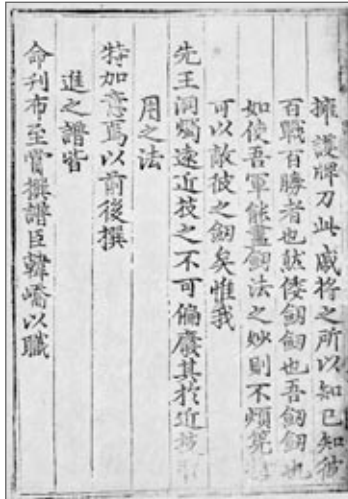 擁護牌刀此威將之所以知已知彼
百戰百勝者也然倭劒劒也吾劒劒也
如使吾軍能盡劒法之妙則不煩
可以敵彼之劒矣惟我
先王洞燭遠近技之不可偏廢其於近技
用之法
特加意焉以前後撰
進之譜皆
命刋布至賞撰譜臣韓嶠以職